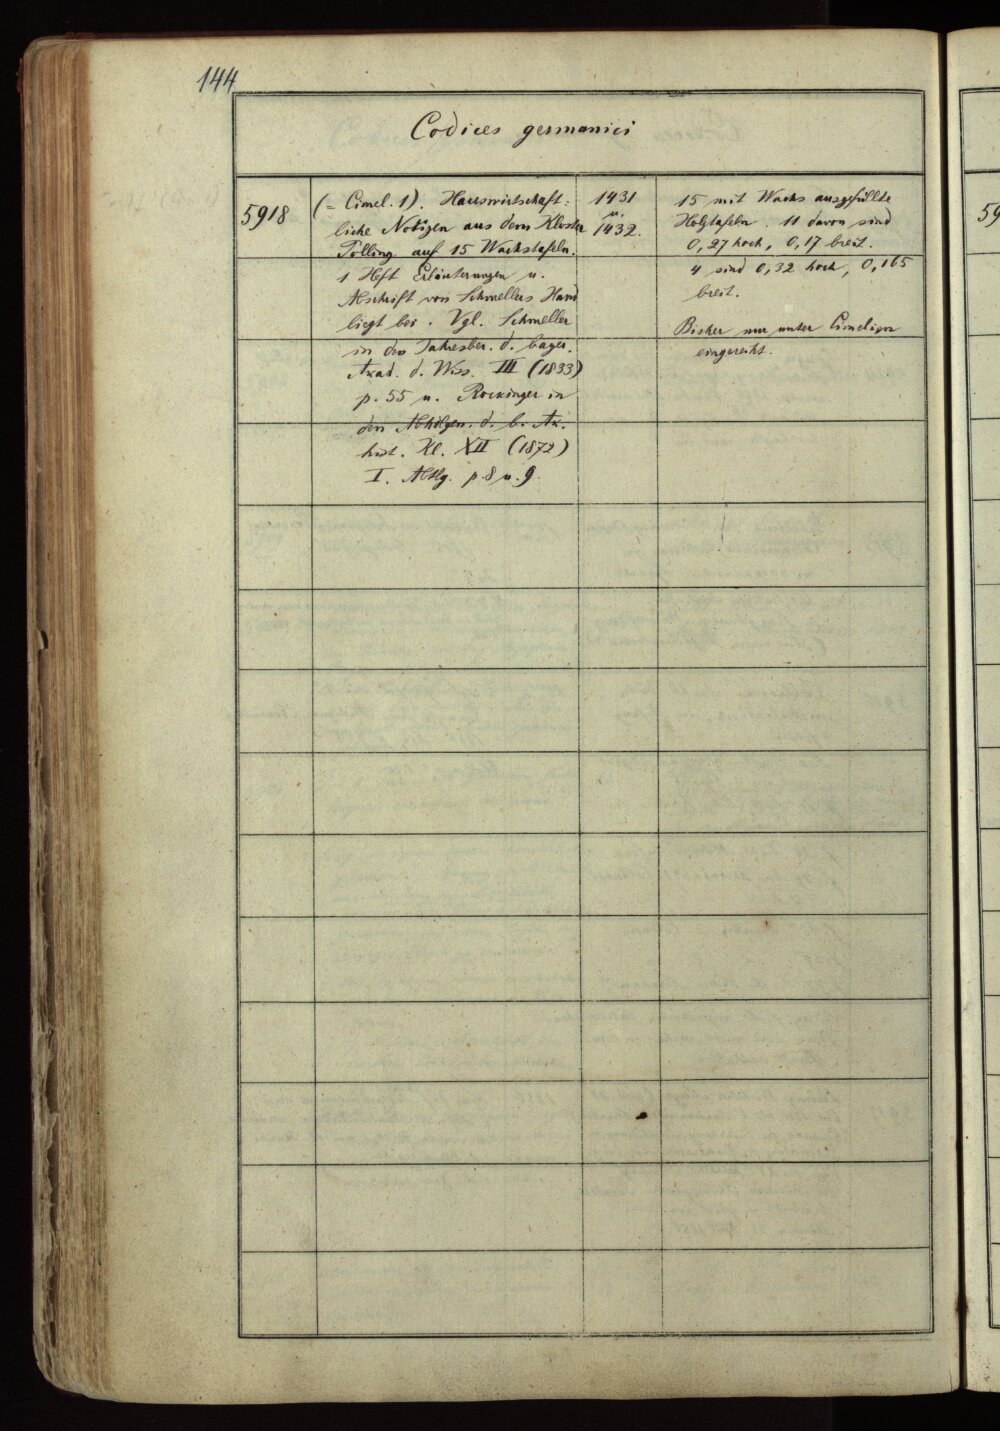 144
Codices germanici
5918
(= Cimel. 1). Hauswirtschaft-
liche Notizen aus dem Kloster
Polling auf 15 Wachstafeln.
1 Heft Erläuterungen u.
Abschrift von Schmellers Hand
liegt bei. Vgl. Schmeller
in den Jahresber. d. bayer.
Akad. d. Wiss. III (1833)
p. 55 u. Rockinger in
den Abhdlgen. d. b. Ak.
hist. Kl. XII (1872)
I. Abtlg. p. 8 u. 9.
1431
u.
1432.
15 mit Wachs ausgefüllte
Holztafeln. 11 davon sind
0,27 hoch, 0,17 breit.
4 sind 0,32 hoch, 0,165
breit.
Bisher nur unter Cimelien
eingereiht.
59